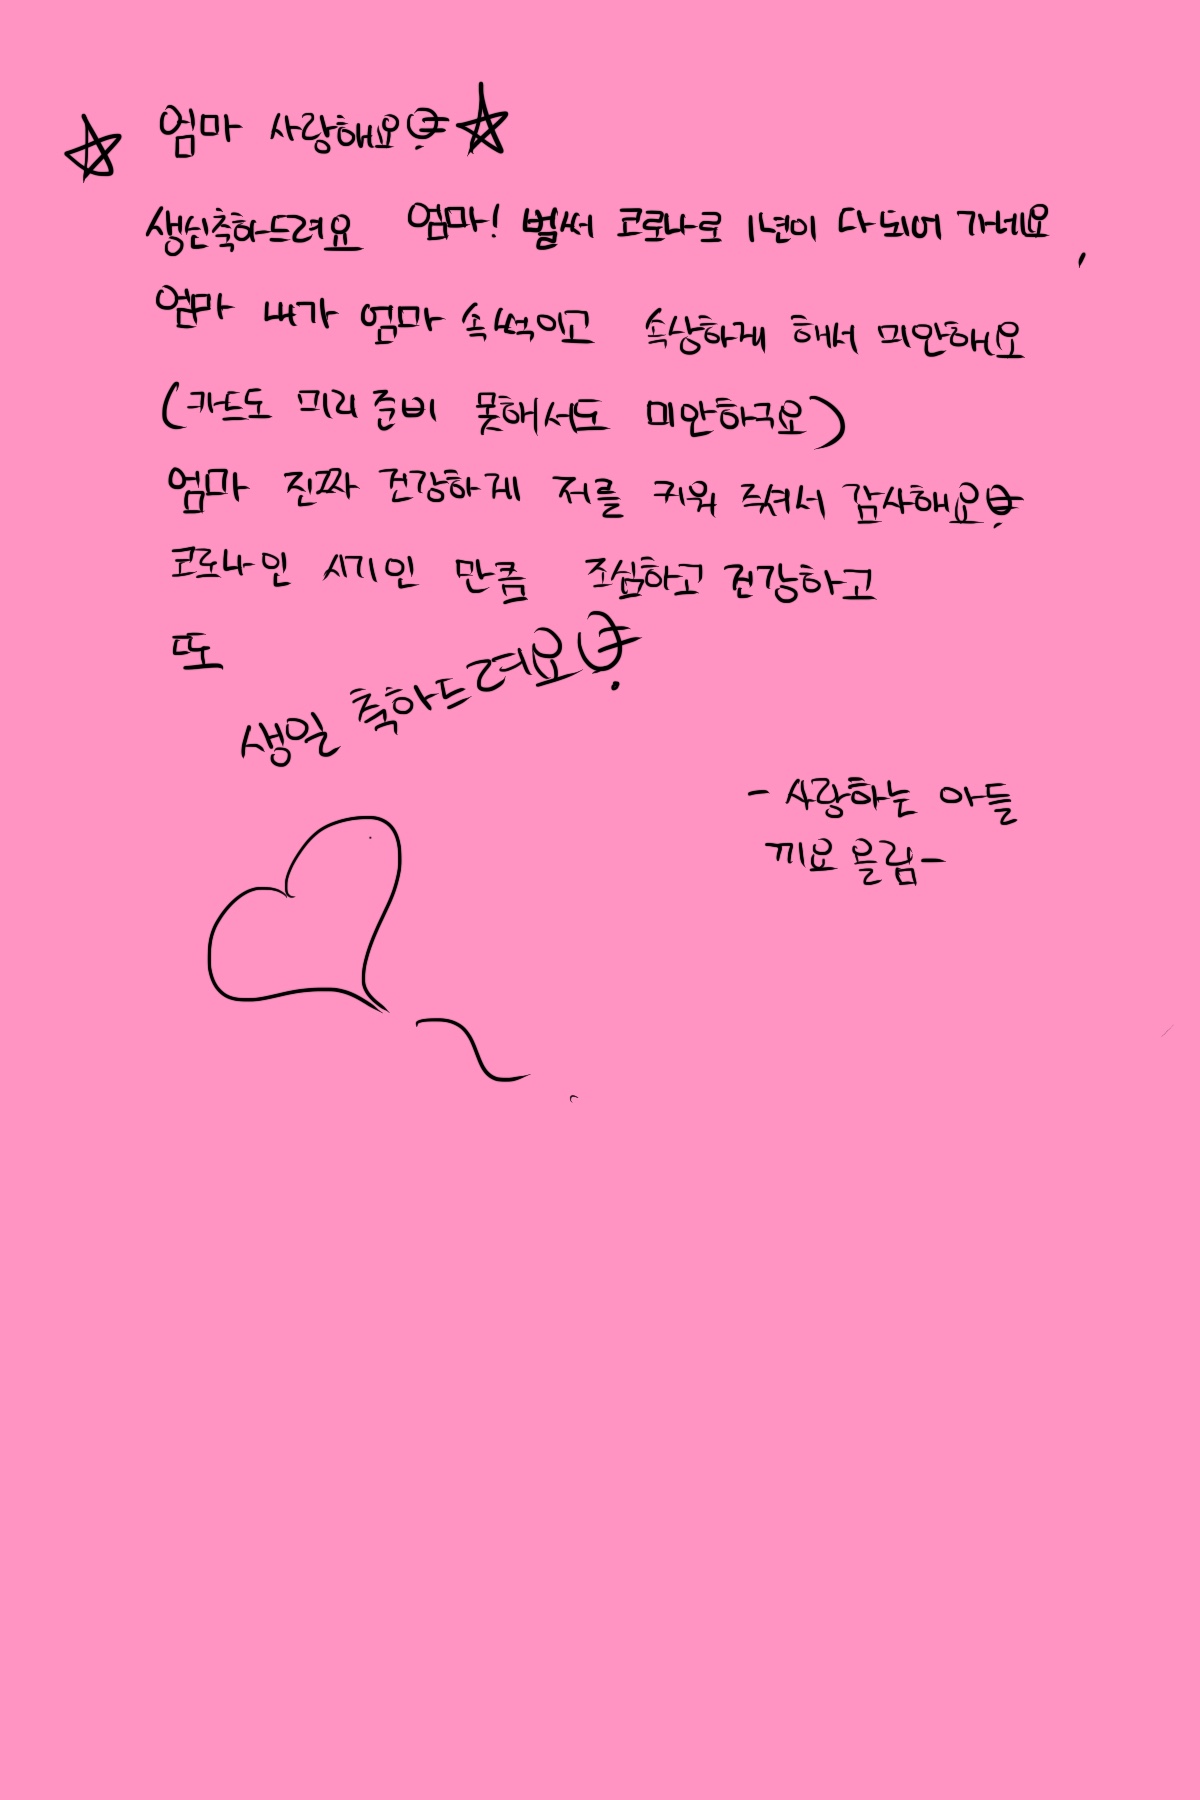 ☆ 엄마 사랑해요 ☆
생신축하드려요 엄마! 벌써 코로나로 1년이 다 되어 가네요,
엄마 내가 엄마 속 썩이고 속상하게 해서 미안해요
(카드도 미리 준비 못해서도 미안하구요)
엄마 진짜 건강하게 저를 키워 주셔서 감사해요
코로나인 시기인 만큼 조심하고 건강하고
또
생일 축하드려요
- 사랑하는 아들
끼요 올림-